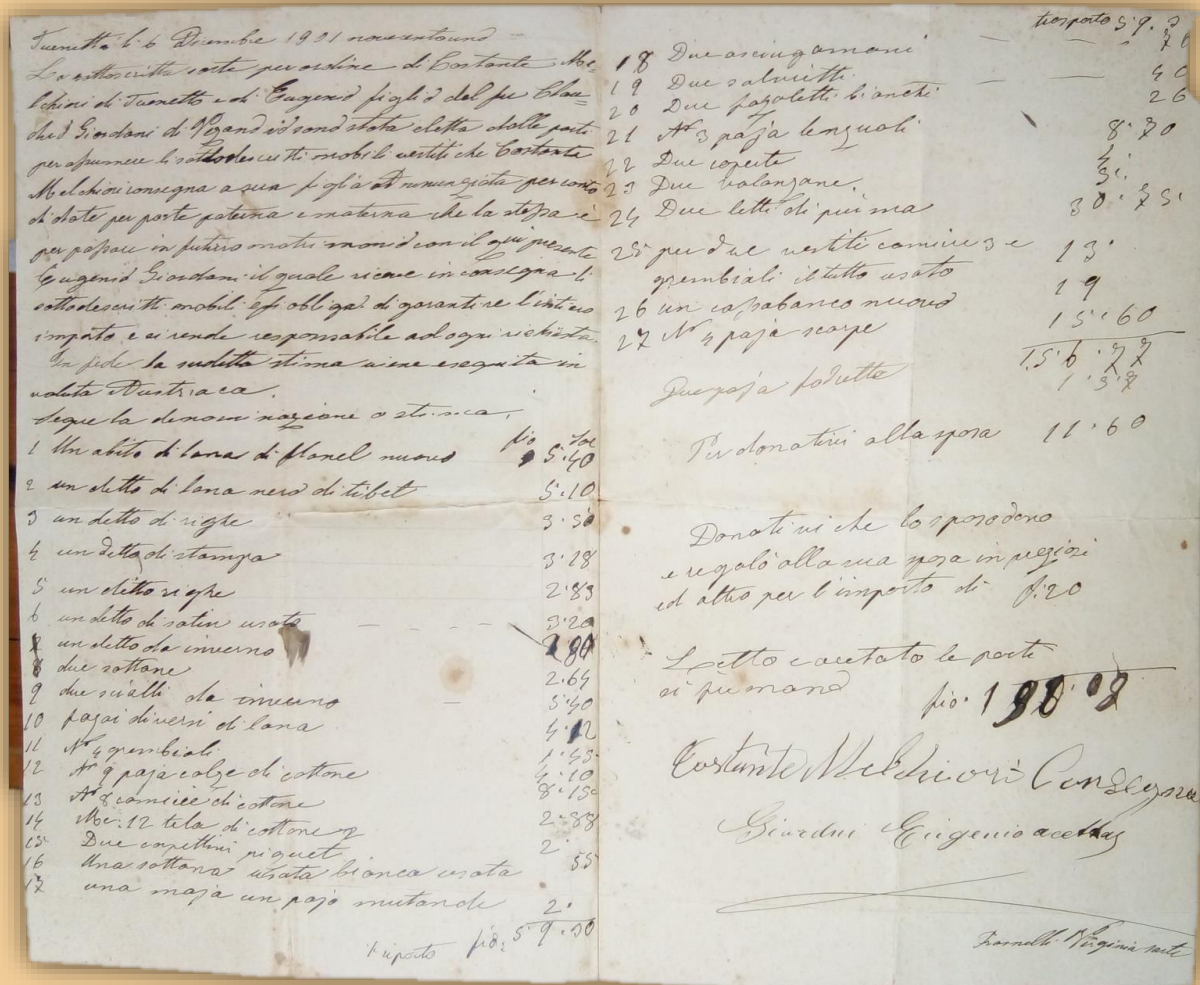 Tuenetto li 6 Dicembre 1901 novecentouno
La sottoscritta sarte per ordine di Costante Mel=
chiori di Tuenetto e di Eugenio figlio del fu Clau=
dio Giordani di sono stata eletta dalle parti
per asumere li sottodescritti mobili vestiti che Costante
Melchiori consegna a sua figlia at nunciata per conto
di dote per parte paterna e materna che la stessa è
per passare in futuro matrimonio con il qui presente
Eugenio Giordani il quale riceve in consegna li
sottodescritti mobili obligo di garantire l'intiero
importo e si rende responsabile ad ogni richiesta
In fede la sudetta stima viene eseguita in
valuta Austriaca.
Segue la denominazione o stimca.
fio Sol
1 Un abito di lana di flanel nuovo 5.40
2 un detto di lana nero di tibet 5.10
3 un detto di righe 3.50
4 un detto di stampa 3.28
5 un detto righe 2.83
6 un detto di satin usato 3.20
7 un detto da inverno 2.80
8 due sottane 2.64
9 due scialli da inverno 5.40
10 pagai diversi di lana 4.12
11 N° 4 grembiali 1.45
12 N° 9 paja calze di cottone 4.10
13 N° 8 camicie di cottone 8.15
14 Me: 12 tela di cottone 2.88
15 Due corpettini piquet 2.
16 Una sottana usata bianca usata 55
17 una maja un pajo mutande 2.
riporto fio: 59.30
trasporto 59.3
18 Due asciugamani 70
19 Due salvietti 40
20 Due fazoletti bianchi 26
21 N° 3 paja lenzuoli 8.70
22 Due coperte 4.
23 Due balanzane. 3.
24 Due letti di piuma 30.75
25 per due vestiti camicie 3 e
grembiali il tutto usato 13.
26 un cassabanco nuovo 19
27 N° 4 paja scarpe 15.60
156.77
Due paja fodrette 1.38
Per donativi alla sposa 11.60
Donativi che lo sposo dono
e regalò alla sua sposa in preziosi
ed altro per l'importo di f.20
Letto e acetato le parti
si firmano fio. 190.08
Costante Melchiori Consegna
Giordni Eugenio acetta
Virginia sarte